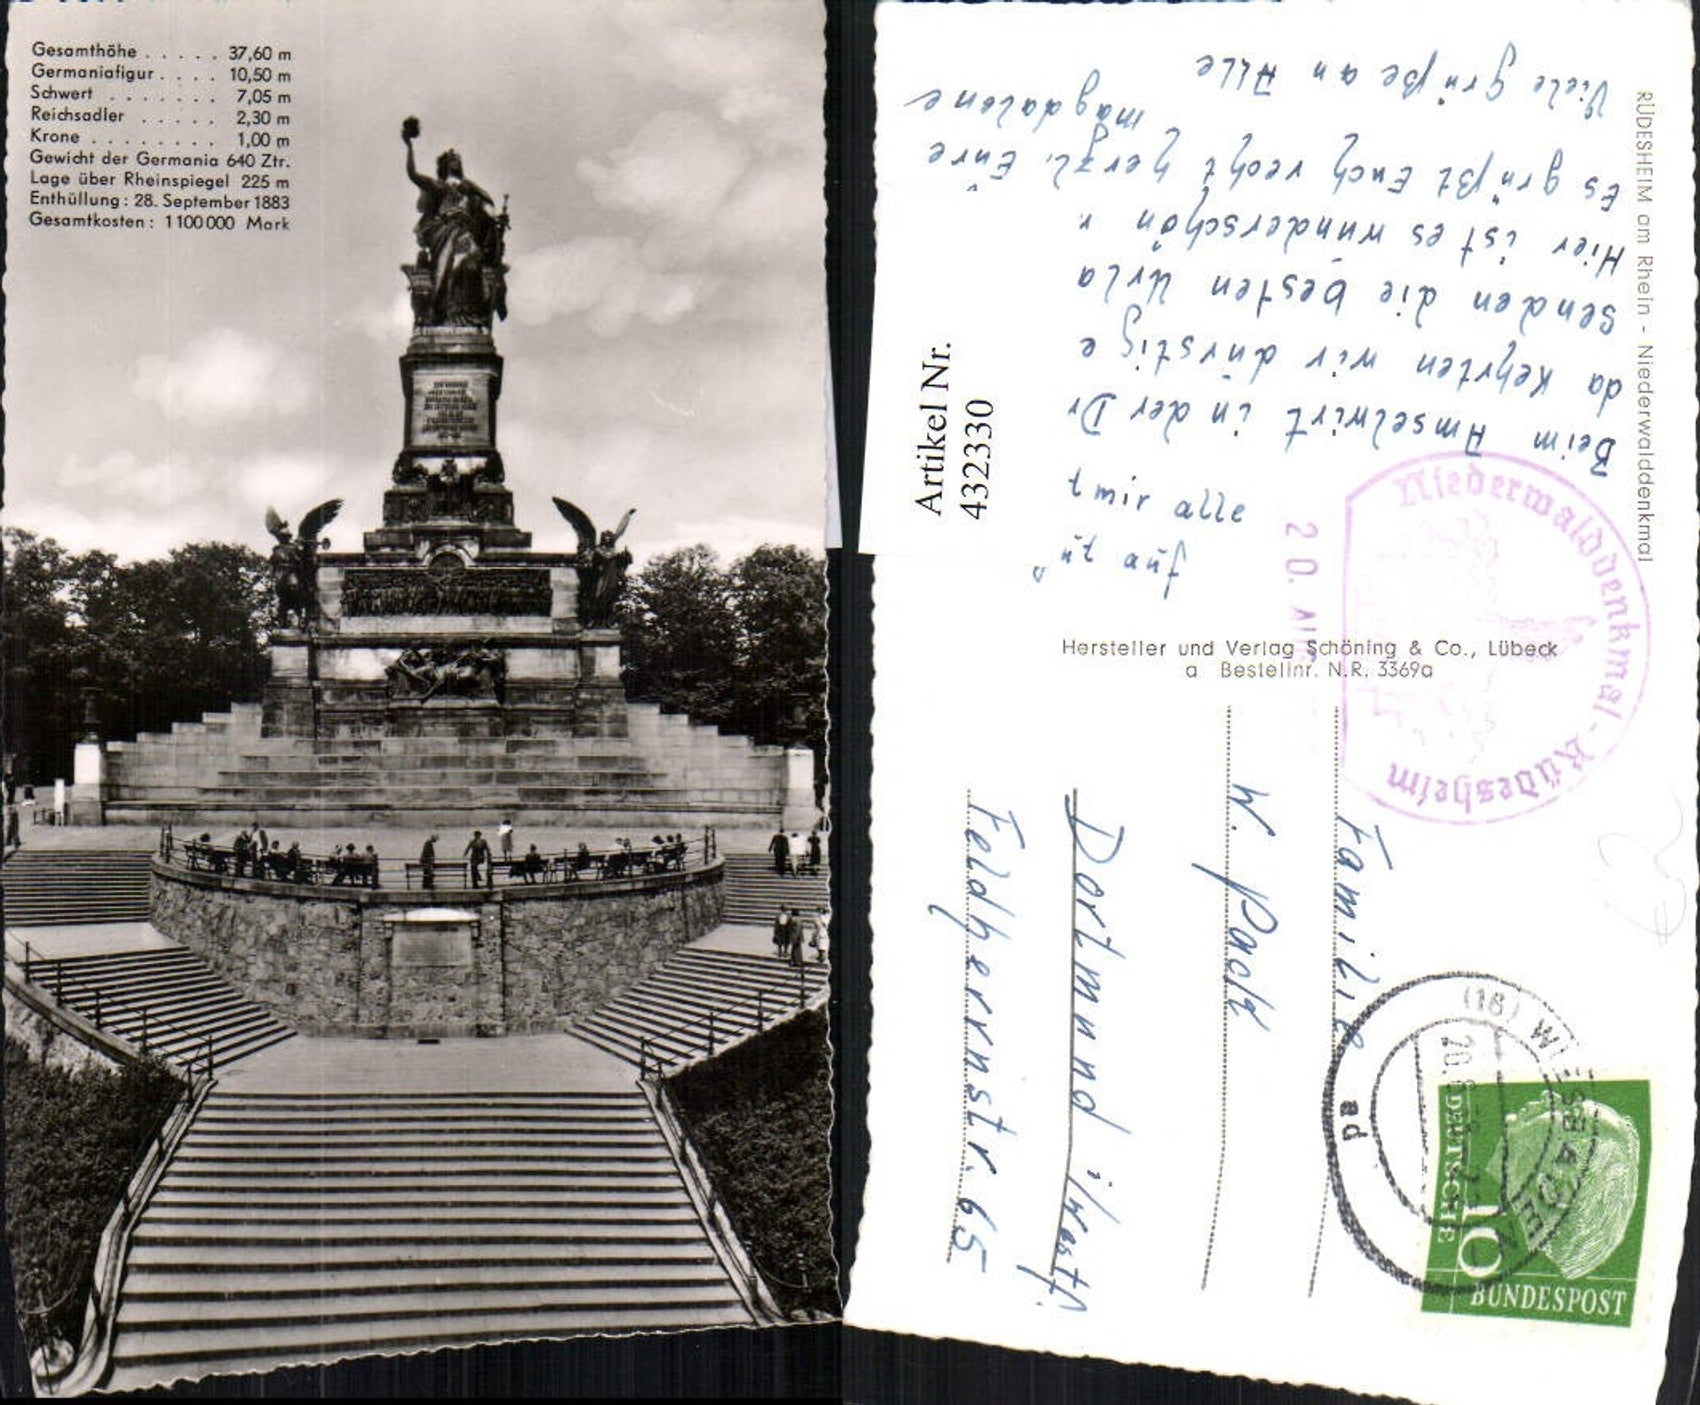 Gesamthöhe . . . . . 37,60 m
Germaniafigur . . . . 10,50 m
Schwert . . . . . . . 7,05 m
Reichsadler . . . . . 2,30 m
Krone . . . . . . . . 1,00 m
Gewicht der Germania 640 Ztr.
Lage über Rheinspiegel 225 m
Enthüllung: 28. September 1883
Gesamtkosten: 1100000 Mark
RÜDESHEIM am Rhein - Niederwalddenkmal
Viele Grüße an Alle
Magdalene
Es grüßt Euch recht herzl. Eure
Hier ist es wunderschön
senden die besten Urla
da kehrten wir durstige
Beim Amselwirt in der Dr
mir alle
Artikel Nr.
432330
Niederwalddenkmal - Rüdesheim
20. AUG
Hersteller und Verlag Schöning & Co., Lübeck
a Bestellnr. N.R. 3369a
Familie
W. Pack
Dortmund i/Westf.
Feldhernstr. 65
(16) WIESBADEN
20.8.
ad
DEUTSCHE
10
BUNDESPOST